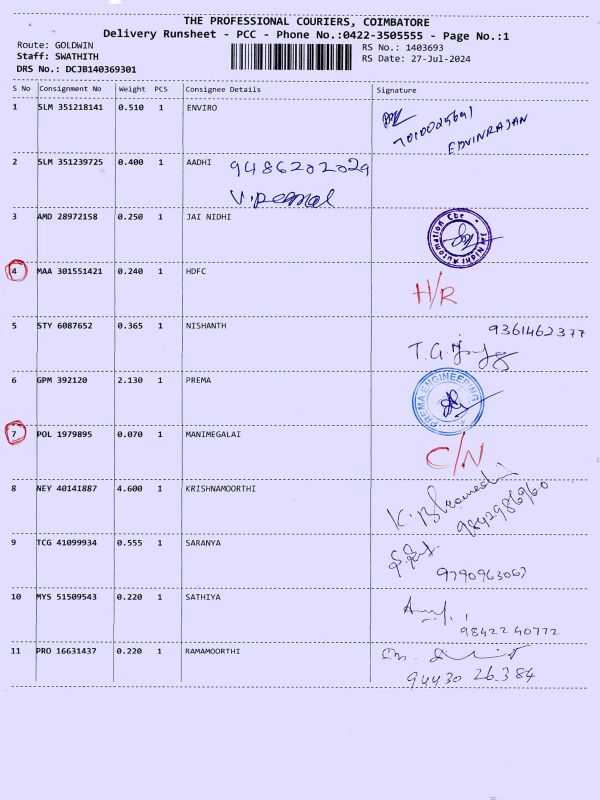 THE PROFESSIONAL COURIERS, COIMBATORE
Delivery Runsheet - PCC - Phone No.:0422-3505555 - Page No.:1
Route: GOLDWIN
Staff: SWATHITH
DRS No.: DCJB140369301
RS No.: 1403693
RS Date: 27-Jul-2024
S No Consignment No Weight PCS Consignee Details Signature
1 SLM 351218141 0.510 1 ENVIRO
EDVINRAJAN
2 SLM 351239725 0.400 1 AADHI 9486202029
V.
3 AMD 28972158 0.250 1 JAI NIDHI
Jai Nidhi Automation Cbe
4 MAA 301551421 0.240 1 HDFC
H/R
5 STY 6087652 0.365 1 NISHANTH 9361462377
T.G.
6 GPM 392120 2.130 1 PREMA
PREMA ENGINEERING
7 POL 1979895 0.070 1 MANIMEGALAI
C/N
8 NEY 40141887 4.600 1 KRISHNAMOORTHI
K.
9842986960
9 TCG 41099934 0.555 1 SARANYA
9790963067
10 MYS 51509543 0.220 1 SATHIYA
9842240772
11 PRO 16631437 0.220 1 RAMAMOORTHI
94430 26384